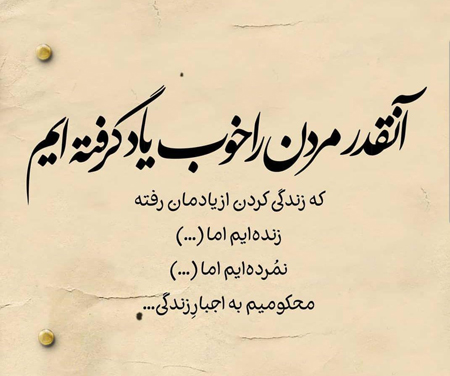 آنقدر مردن را خوب یاد گرفته ایم
که زندگی کردن از یادمان رفته
زنده‌ایم اما (...)
نمُرده‌ایم اما (...)
محکومیم به اجبارِ زندگی...